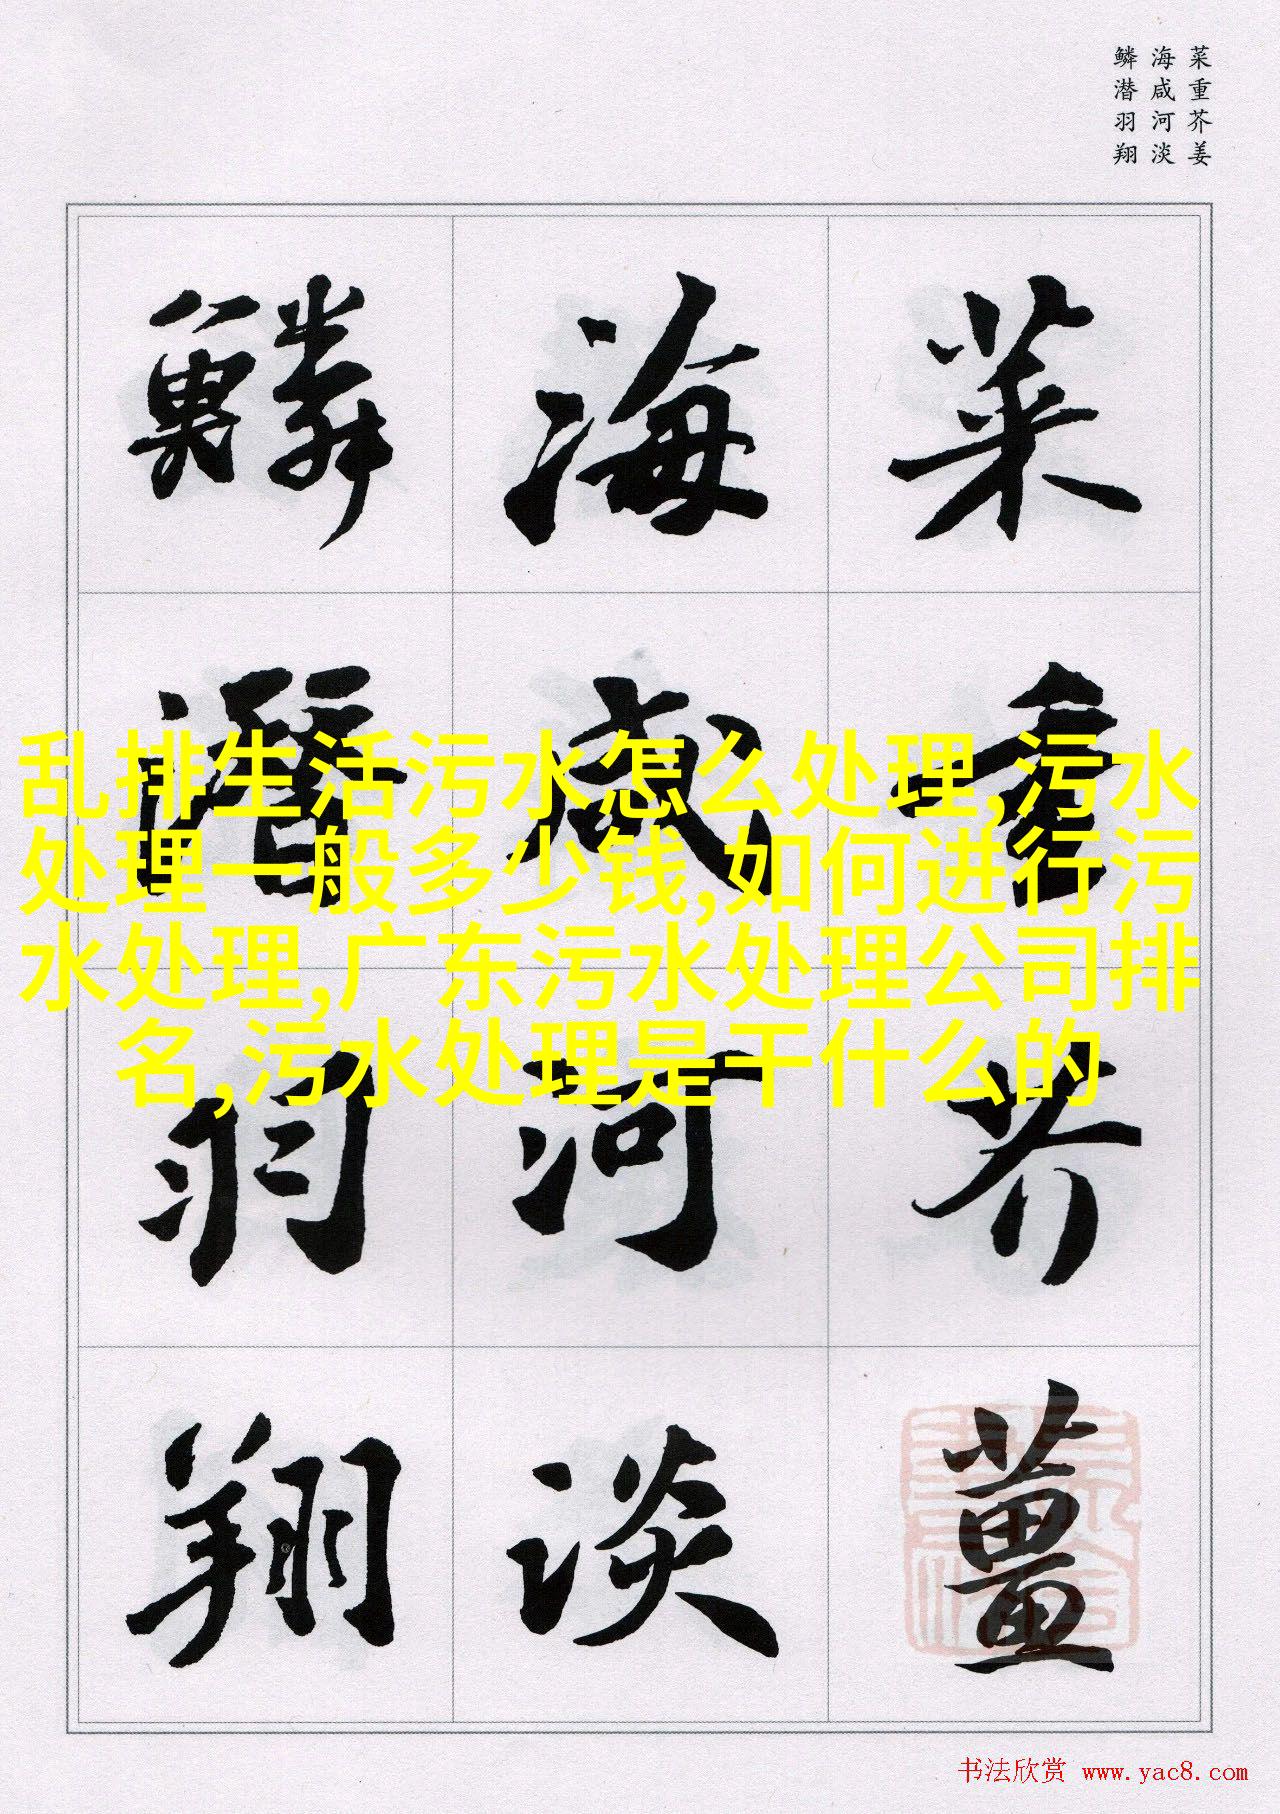 菜重芥姜
海咸河淡
鳞潜羽翔
菜重芥薑
海咸河淡
鱗潛羽翔
乱排生活污水怎么处理,污水
处理一般多少钱,如何进行污
水处理,广东污水处理公司排
名,污水处理是干什么的
书法欣赏 www.yac8.com